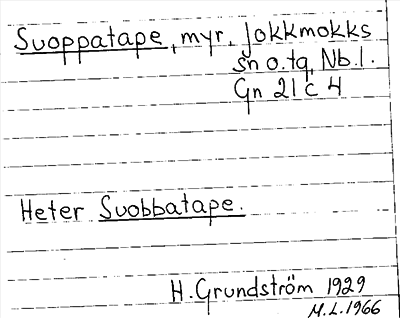 Suoppatape, myr, Jokkmokks
sn o. tg, Nb. l.
Gn 21 c 4
Heter Suobbatape.
H. Grundström 1929
M.L. 1966